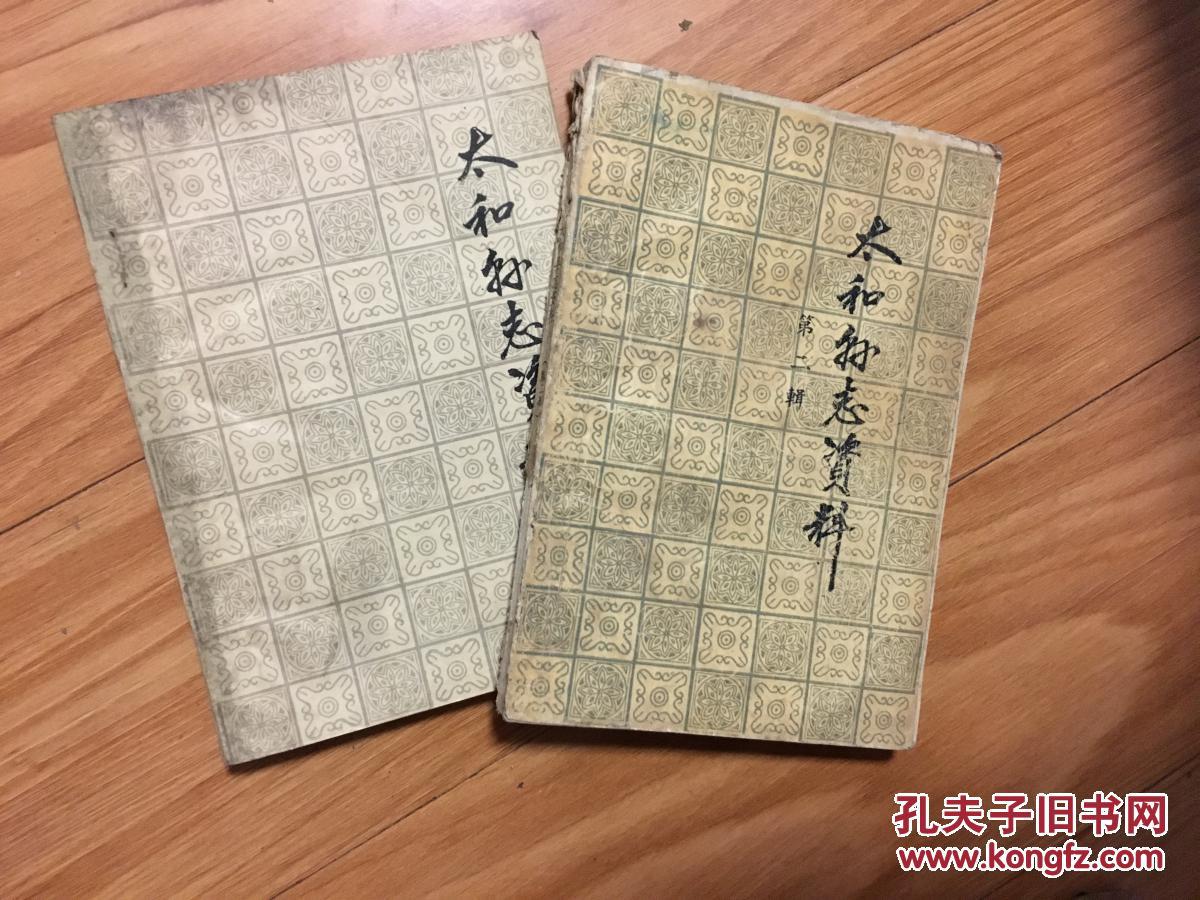 太和县志资
太和县志资料
第二輯
孔夫子旧书网
www.kongfz.com